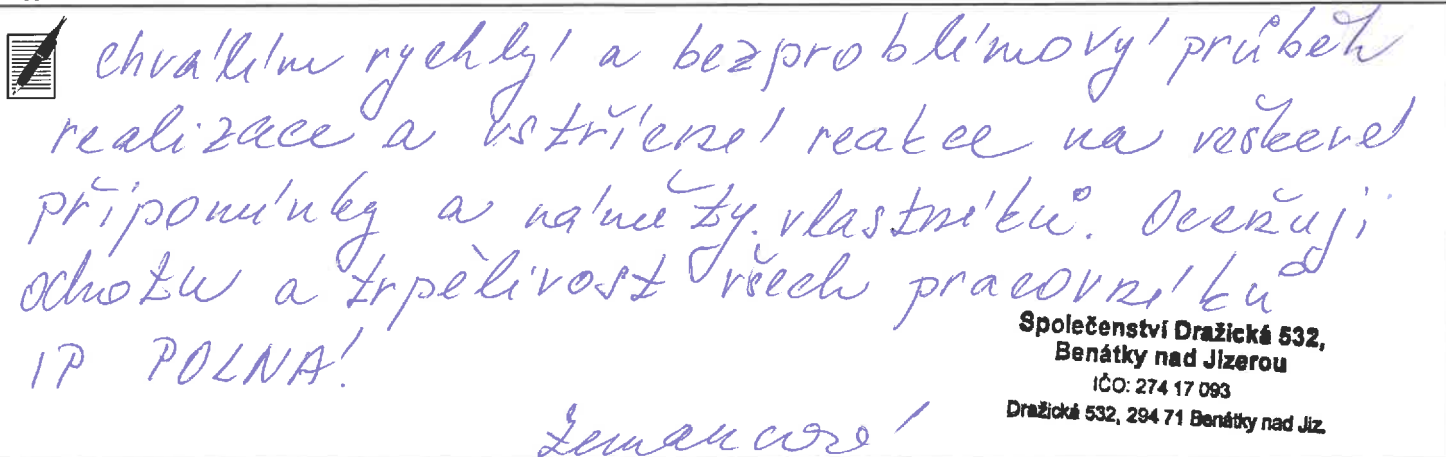 chválím rychlý a bezproblémový průběh
realizace a vstřícné reakce na veškeré
připomínky a náměty vlastníků. Oceňuji
ochotu a trpělivost všech pracovníků
IP POLNÁ!
Společenství Dražická 532,
Benátky nad Jizerou
IČO: 274 17 093
Dražická 532, 294 71 Benátky nad Jiz.